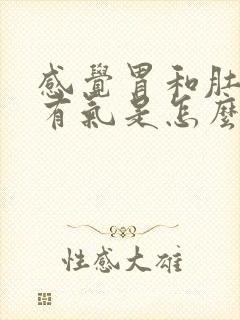 感覺胃和肚
有氣是怎麼
性感大雄